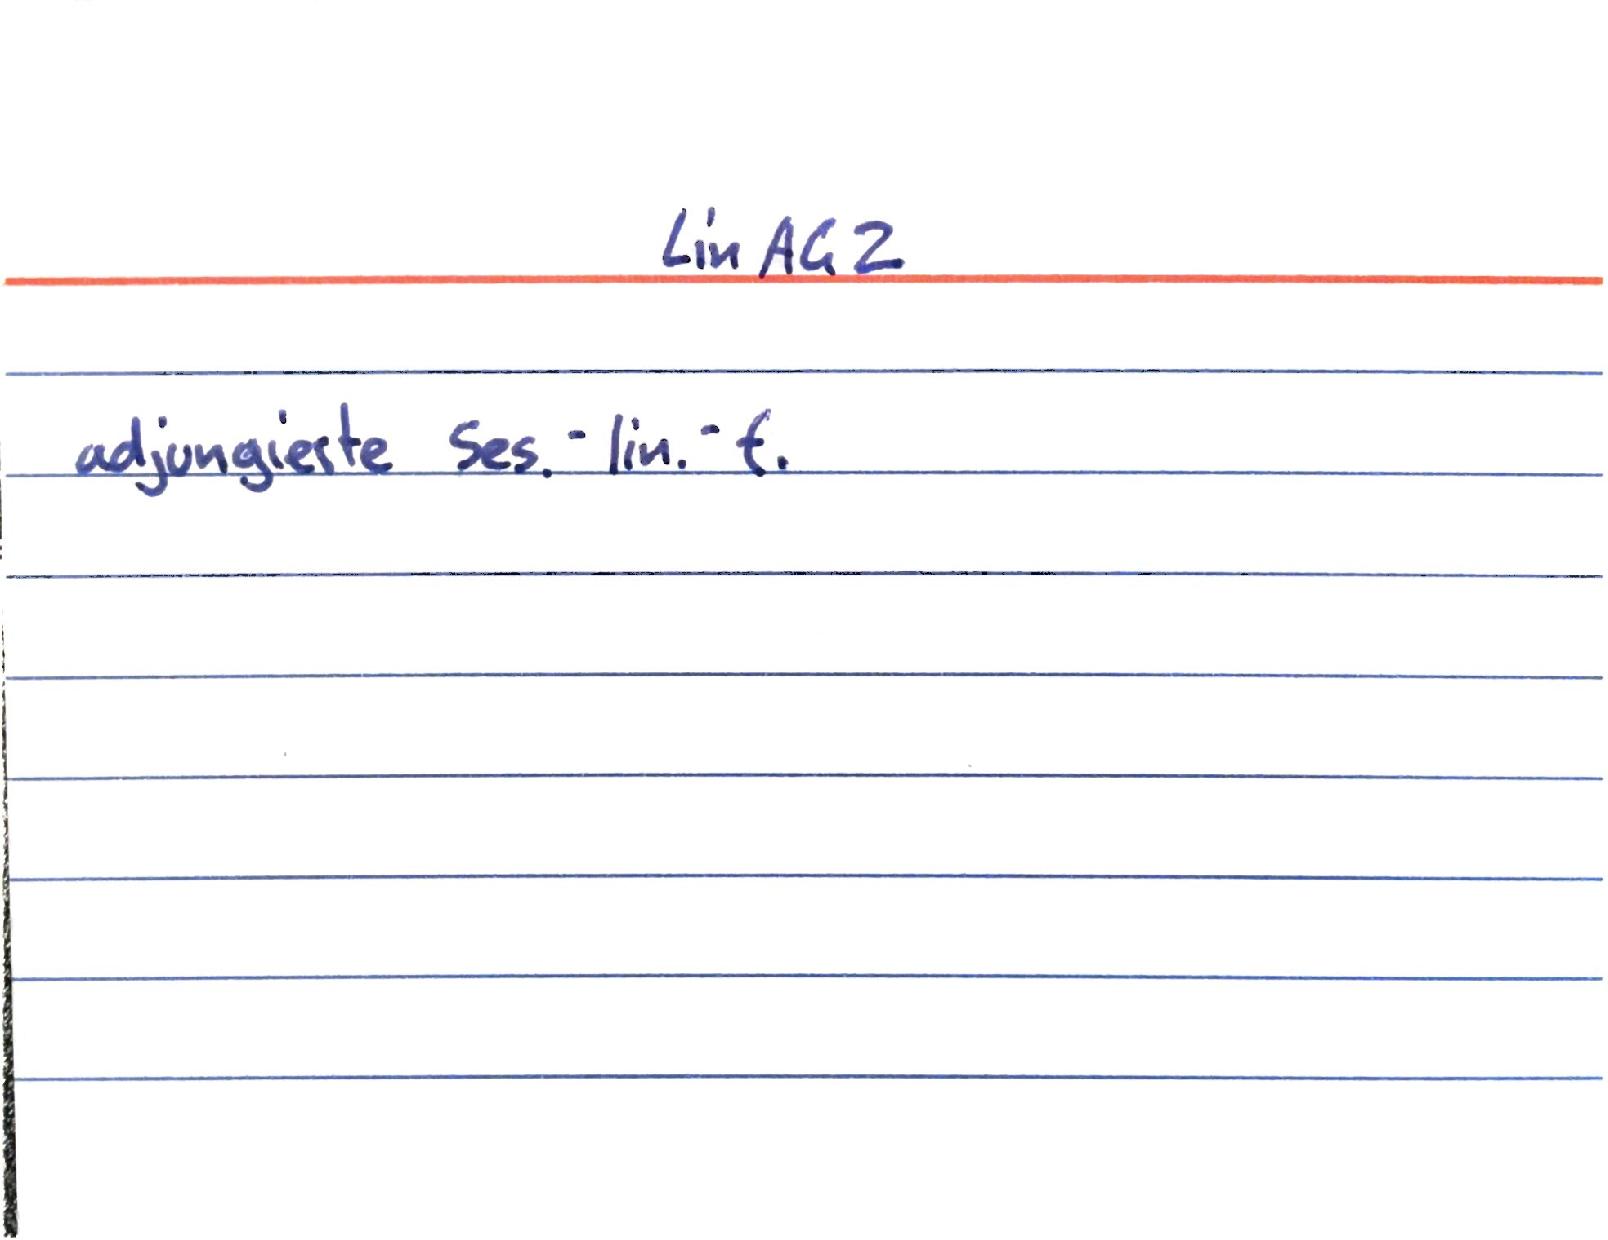 Lin AG 2
adjungierte Ses.-lin.-f.